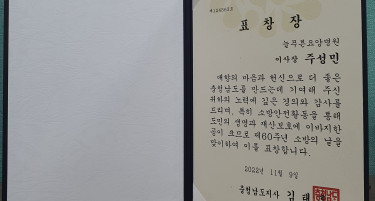 표 창 장
늘푸른요양병원
이사장 주성민
애향의 마음과 헌신으로 더 좋은
충청남도를 만드는데 기여해 주신
귀하의 노력에 깊은 경의와 감사를
드리며, 특히 소방안전활동을 통해
도민의 생명과 재산보호에 이바지한
공이 크므로 제60주년 소방의 날을
맞이하여 이를 표창합니다.
2022년 11월 9일
충청남도지사 김 태